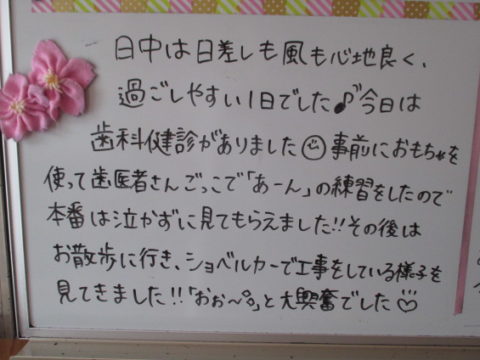 日中は日差しも風も心地良く、
過ごしやすい1日でした♪今日は
歯科健診がありました☺事前におもちゃを
使って歯医者さんごっこで「あーん」の練習をしたので
本番は泣かずに見てもらえました!!その後は
お散歩に行き、ショベルカーで工事をしている様子を
見てきました!!「おぉ〜。」と大興奮でした☺